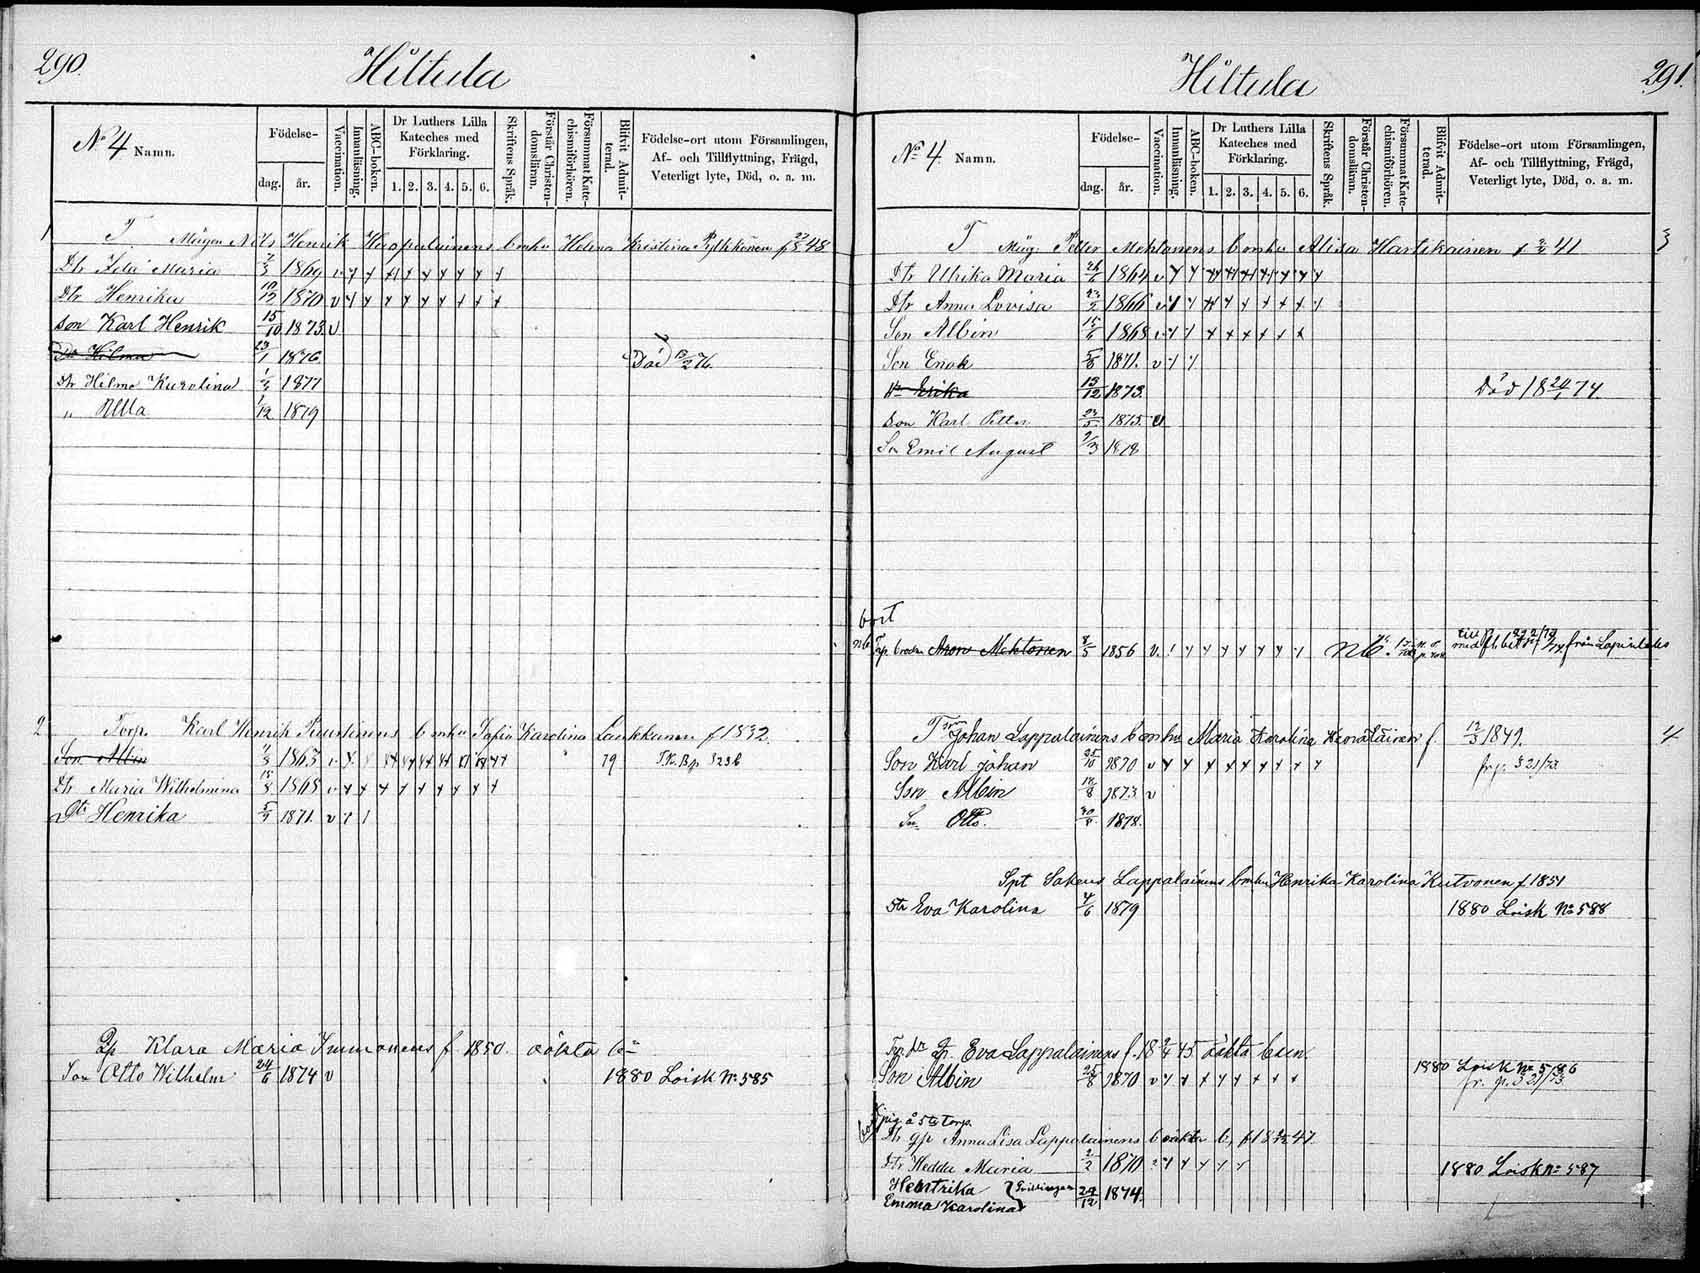 290.
Hiltula
No 4 Namn.
Födelse-
dag.
år.
Vaccination.
Innanläsning.
ABC-boken.
Dr Luthers Lilla
Kateches med
Förklaring.
1. 2. 3. 4. 5. 6.
Skriftens Språk.
Förstår Christen-
domsläran.
Försummat Kate-
chismiförhören.
Blifvit Admit-
terad.
Födelse-ort utom Församlingen,
Af- och Tillflyttning, Frägd,
Veterligt lyte, Död, o. a. m.
1 T. Mågen Nils Henrik Haapalainens b m hu Helena Kristina Pylkkänen f 48
Dtr Ida Maria 2/3 1869 v
Dtr Henrika 10/12 1870 v
Son Karl Henrik 15/10 1873. v
Dr Hilma 13/1 1876 Död 13/2 76.
Dtr Hilma Karolina 1877
" Ulla 1/12 1879
2 Torp. Karl Henrik Puustinens b m hu Sofia Karolina Laukkanen f 1832.
Son Albin 1863 v 79 T.K.Bp 323b
Dtr Maria Wilhelmina 15/8 1868 v
Dtr Henrika 1871. v
Qp Klara Maria Immonens f 1850. oäkta b:n
Son Otto Wilhelm 24/6 1874 v 1880 Loisk No 585
291.
Hiltula
No 4. Namn.
Födelse-
dag.
år.
Vaccination.
Innanläsning.
ABC-boken.
Dr Luthers Lilla
Kateches med
Förklaring.
1. 2. 3. 4. 5. 6.
Skriftens Språk.
Förstår Christen-
domsläran.
Försummat Kate-
chismiförhören.
Blifvit Admit-
terad.
Födelse-ort utom Församlingen,
Af- och Tillflyttning, Frägd,
Veterligt lyte, Död, o. a. m.
T Måg Petter Mehtonens b m hu Alisa Hartikainen f 41 3
Dtr Ulrika Maria 1864 v
Dtr Anna Lovisa 23/2 1866 v
Son Albin 15/6 1868 v
Son Enok 5/8 1871. v
Dr Erika 13/12 1873. Död 18 24/1 74.
Son Karl Petter 23/5 1875. v
Son Emil August 9/3 1878
bort
Torp. broder Aron Mehtonen 8/5 1856 v. från Lapinlaks
T Johan Lappalainens b m hu Maria Karolina f. 12/3 1849. 4
Son Karl Johan 25/10 1870 v fr. p. 321/73
Son Albin 1873 v
Son Otto. 30/8 1878.
Spt Sakeus Lappalainens b m hu Henrika Karolina Kutvonen f 1851
Dtr Eva Karolina 4/6 1879 1880 Loisk No 588
Torp. dr Qp. Eva Lappalainens f. 18 45 oäkta b:en.
Son Albin 25/8 1870 v 1880 Loisk No 586
fr. p. 321/73
pig. å 5te torp.
Dtr qp Anna Lisa Lappalainens oäkta b, f 18 47.
Dtr Hedda Maria 2/2 1870 1880 Loisk No 587
Henrika } Tvillingar 29/12 1874.
Emma Karolina